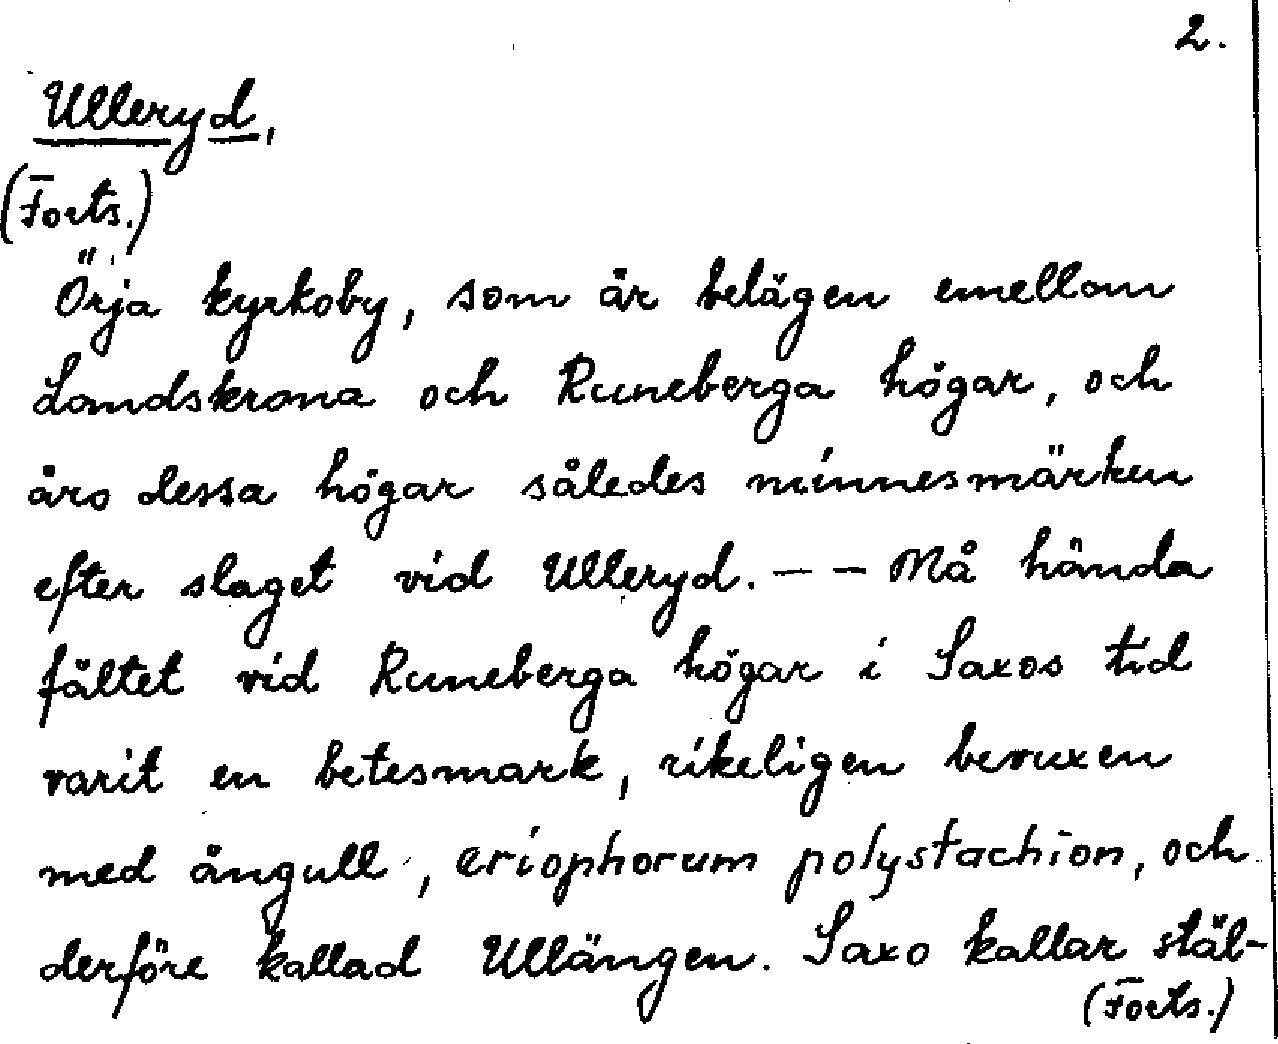 2.
Ulleryd,
(Forts.)
Örja kyrkoby, som är belägen emellom
Landskrona och Runeberga högar, och
äro dessa högar således minnesmärken
efter slaget vid Ulleryd. — — Må hända
fältet vid Runeberga högar i Saxos tid
varit en betesmark, rikeligen bevuxen
med ängull, eriophorum polystachion, och
derföre kallad Ullängen. Saxo kallar stäl-
(Forts.)